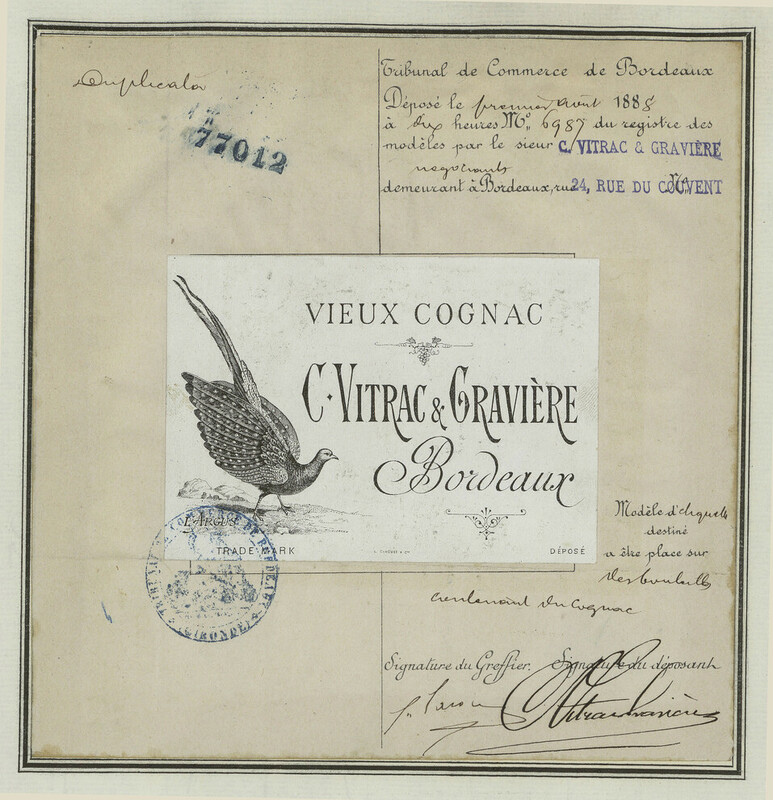 Duplicata
77012
Tribunal de Commerce de Bordeaux
Déposé le premier Août 1888
à dix heures No. 6987 du registre des
modèles par le sieur C. VITRAC & GRAVIÈRE
négociants
demeurant à Bordeaux, rue 24, RUE DU COUVENT
VIEUX COGNAC
C. VITRAC & GRAVIÈRE
Bordeaux
L'ARGUS
TRADE MARK
DÉPOSÉ
TRIBUNAL DE COMMERCE DE BORDEAUX
(GIRONDE)
Modèle d'étiquette
destiné
a être place sur
des bouteilles
contenant du cognac
Signature du Greffier. Signature du déposant